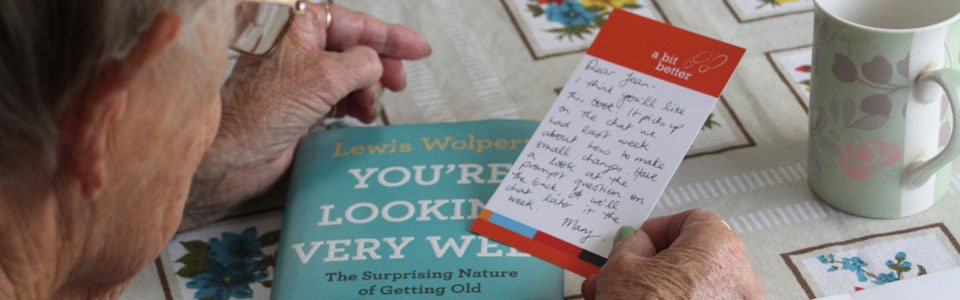 a bit
better
Dear Jean -
I think you'll like
this book. It picks up
on the chat we
had last week
about how to make
small changes. Have
a look at the
prompt question on
the back & we'll
chat later in the
week.
Mary
Lewis Wolpert
YOU'RE
LOOKIN
VERY WE
The Surprising Nature
of Getting Old